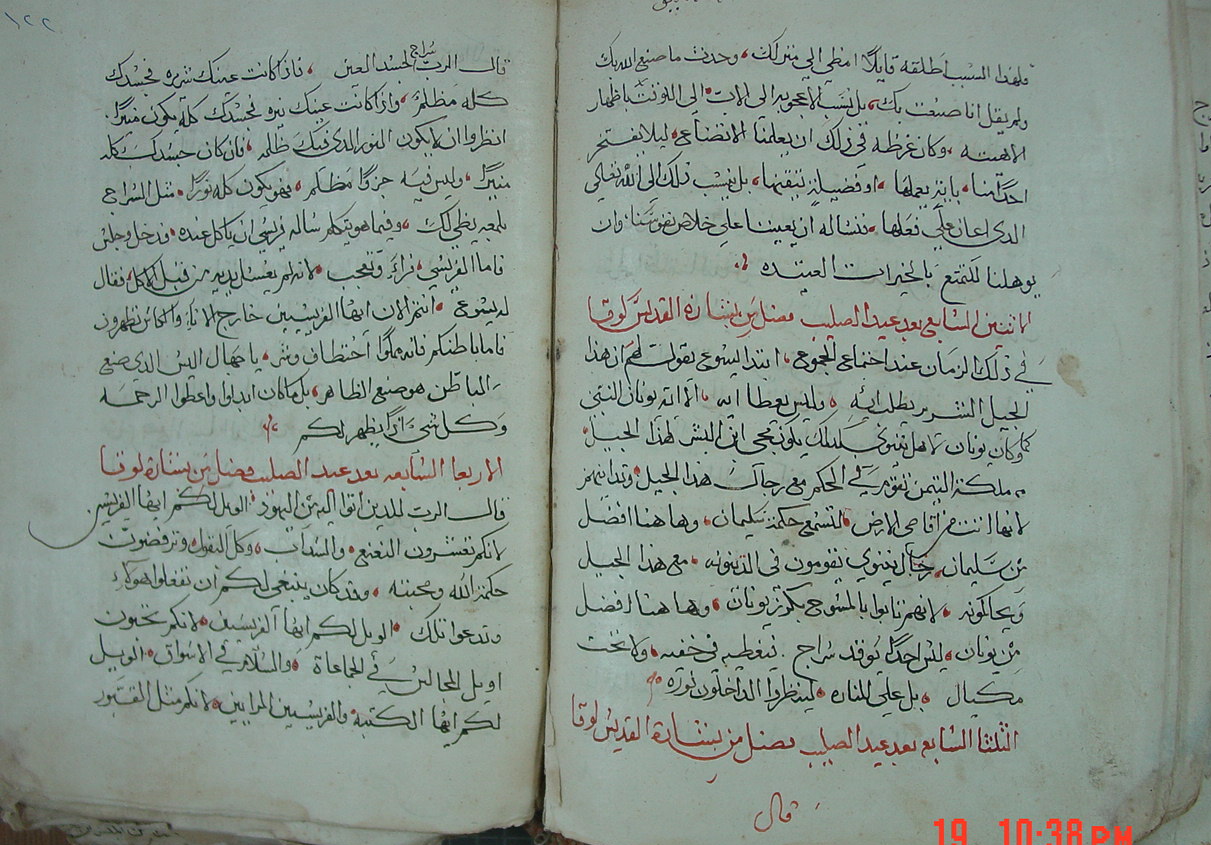 فلهذا السبب اطلقه قايلاً امضي الي منزلك وحدث ما صنع الله بك
ولم يقل انا صنعت بك بل نسب الاعجوبه الي الاب الي التونت باظهار
الاهيته وكان غرضه في ذلك ان يعلمنا الاتضاع ليلا يفتخر
احدًا منا باية يعملها او فضيلة يتقنها بل ينسب ذلك الي الله تعالي
الدي اعان علي فعلها فنساله ان يعيننا علي خلاص نفوسنا وان
يوهلنا للتمتع بالخيرات العتيده
الاتنين السابع بعد عيد الصليب فصل من بشارة القديس لوقا
في ذلك الزمان عند اجتماع الجموع ابتدا ليسوع يقول لهم ان هذا
الجيل الشرير يطلب ايه وليس يعطا ايه الا اية يونان النبي
كما كان يونان لاهل نينوي كذلك يكون مجي ابن البشر لهذا الجيل
ملكة التيمن تقوم في الحكم مع رجال هذا الجيل وتدانيهم
لانها اتت من اقاصي الارض لتسمع حكمة سليمان وها هنا افضل
من سليمان رجال نينوي يقومون في الدينونه مع هذا الجيل
ويحاكمونه لانهم تابوا بالمسوح بكرز يونان وها هنا افضل
من يونان ليس احدًا يوقد سراج فيغطيه في خفيه ولا تحت
مكيال بل علي المناره لينظروا الداخلون نوره
الثلثا السابع بعد عيد الصليب فصل من بشارة القديس لوقا
قال
١٢٢
قال الرب سراج الجسد العين فاذا كانت عينك شريره فجسدك
كله مظلم واذا كانت عينك نيره فجسدك كله يكون منيرًا
انظروا ان لا يكون النور الدي فيك ظلمه فان كان جسدك كله
منيرًا وليس فيه جزوًا مظلم فهو يكون كله نورًا مثل السراج
بلمعه يضي لك وفيما هو يتكلم ساله فريسي ان ياكل عنده فدخل وجلس
فاما الفريسي فراه وتعجب لانه لم يغتسل يديه من قبل الاكل فقال
له يسوع انتم الان ايها الفريسيين خارج الاناء والكاس تطهرون
فاما باطنكم فانه مملوًا اختطاف وشر يا جهال اليس الدي صنع
الباطن هو صنع الظاهر بل مهما كان ابداوا واعطوا الرحمه
وكل شي اذًا يظهر لكم
الاربعا السابعه بعد عيد الصليب فصل من بشارة لوقا
قال الرب للدين اتوا اليه من اليهود الويل لكم ايها الفريسيين
لانكم تعشرون النعنع والسداب وكل البقول وترفضون
حكمة الله ومحبته وقد كان ينبغي لكم ان تفعلوا هولاء
وتدعوا تلك الويل لكم ايها الفريسيين لانكم تحبون
اويل المجالس في الجماعاة والسلام في الاسواق الويل
لكم ايها الكتبة والفريسيين المرايين لانكم مثل القبور